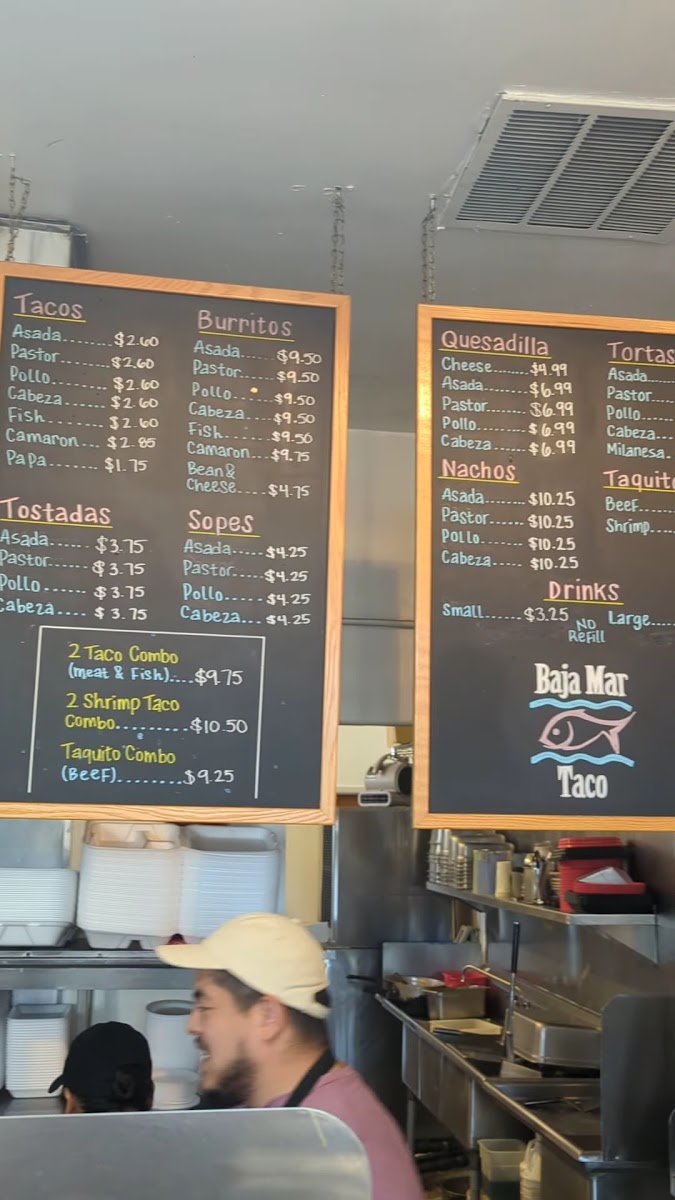 Tacos
Asada........$2.60
Pastor.......$2.60
Pollo........$2.60
Cabeza.......$2.60
Fish.........$2.60
Camaron....$2.85
Papa.......$1.75
Burritos
Asada......$9.50
Pastor.....$9.50
Pollo......$9.50
Cabeza.....$9.50
Fish.......$9.50
Camaron...$9.75
Bean &
Cheese.....$4.75
Tostadas
Asada......$3.75
Pastor.....$3.75
Pollo......$3.75
Cabeza....$3.75
Sopes
Asada.....$4.25
Pastor.....$4.25
Pollo......$4.25
Cabeza...$4.25
2 Taco Combo
(meat & Fish)....$9.75
2 Shrimp Taco
Combo.........$10.50
Taquito Combo
(Beef)........$9.25
Quesadilla
Cheese.......$4.99
Asada.......$6.99
Pastor.......$6.99
Pollo........$6.99
Cabeza......$6.99
Tortas
Asada.....
Pastor....
Pollo.....
Cabeza...
Milanesa.
Nachos
Asada.......$10.25
Pastor......$10.25
Pollo.......$10.25
Cabeza.....$10.25
Taquito
Beef......
Shrimp....
Drinks
Small......$3.25 No Refill Large....
Baja Mar
Taco